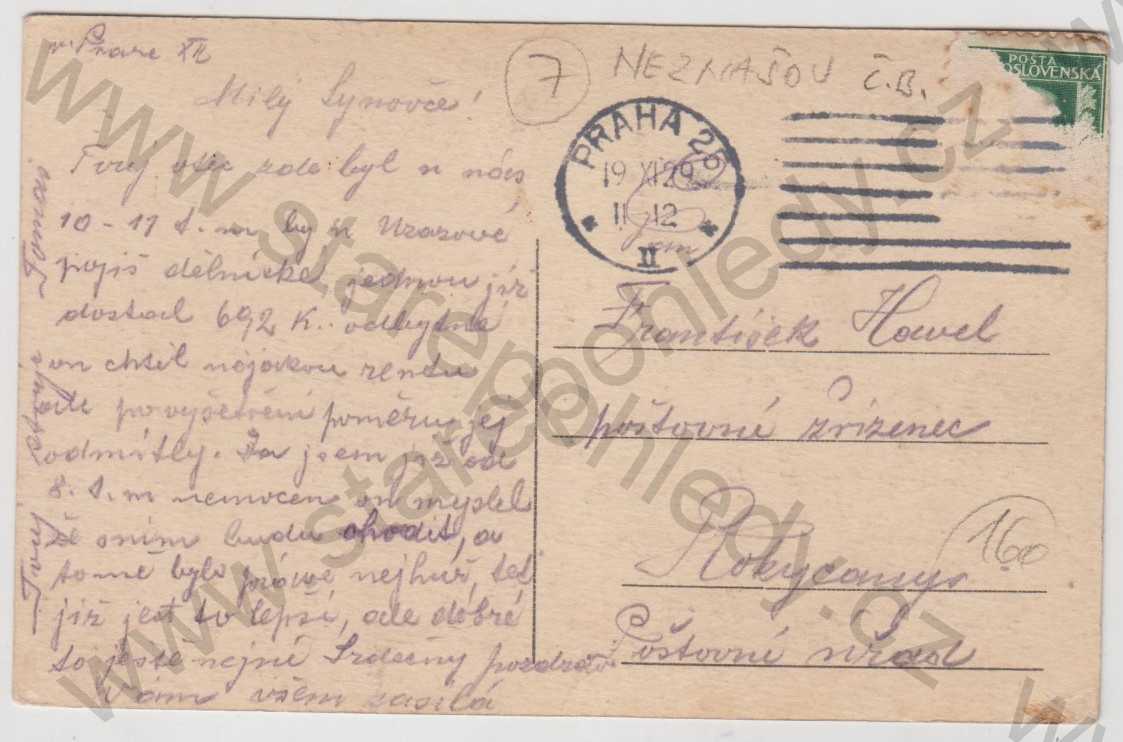 v Praze XII
Milý Synovče!
Tvůj otec zde byl u nás
10-11 t.m. by u Urazové
pojiš dělnické jednou již
dostal 692 K. odbytné
on chtěl nějakou rentu
ale po vyšetření poměru jej
odmítly. Ja jsem již od
8. t.m nemocen on myslel
že sním budu chodit, a
to mě bylo právě nejhuř, teď
již jest to lepší, ale dobré
to ještě nejní Srdečný pozdrav
Vám všem zasílá
Tvůj strýc
7
NEZNAŠOV Č.B.
POSTA
OSLOVENSKÁ
PRAHA 25
19 XI 29
11-12
II
František Hawel
poštovné zřízenec
Rokycany
Poštovné uřad
160
www.starepohledy.cz
www.starepohledy.cz